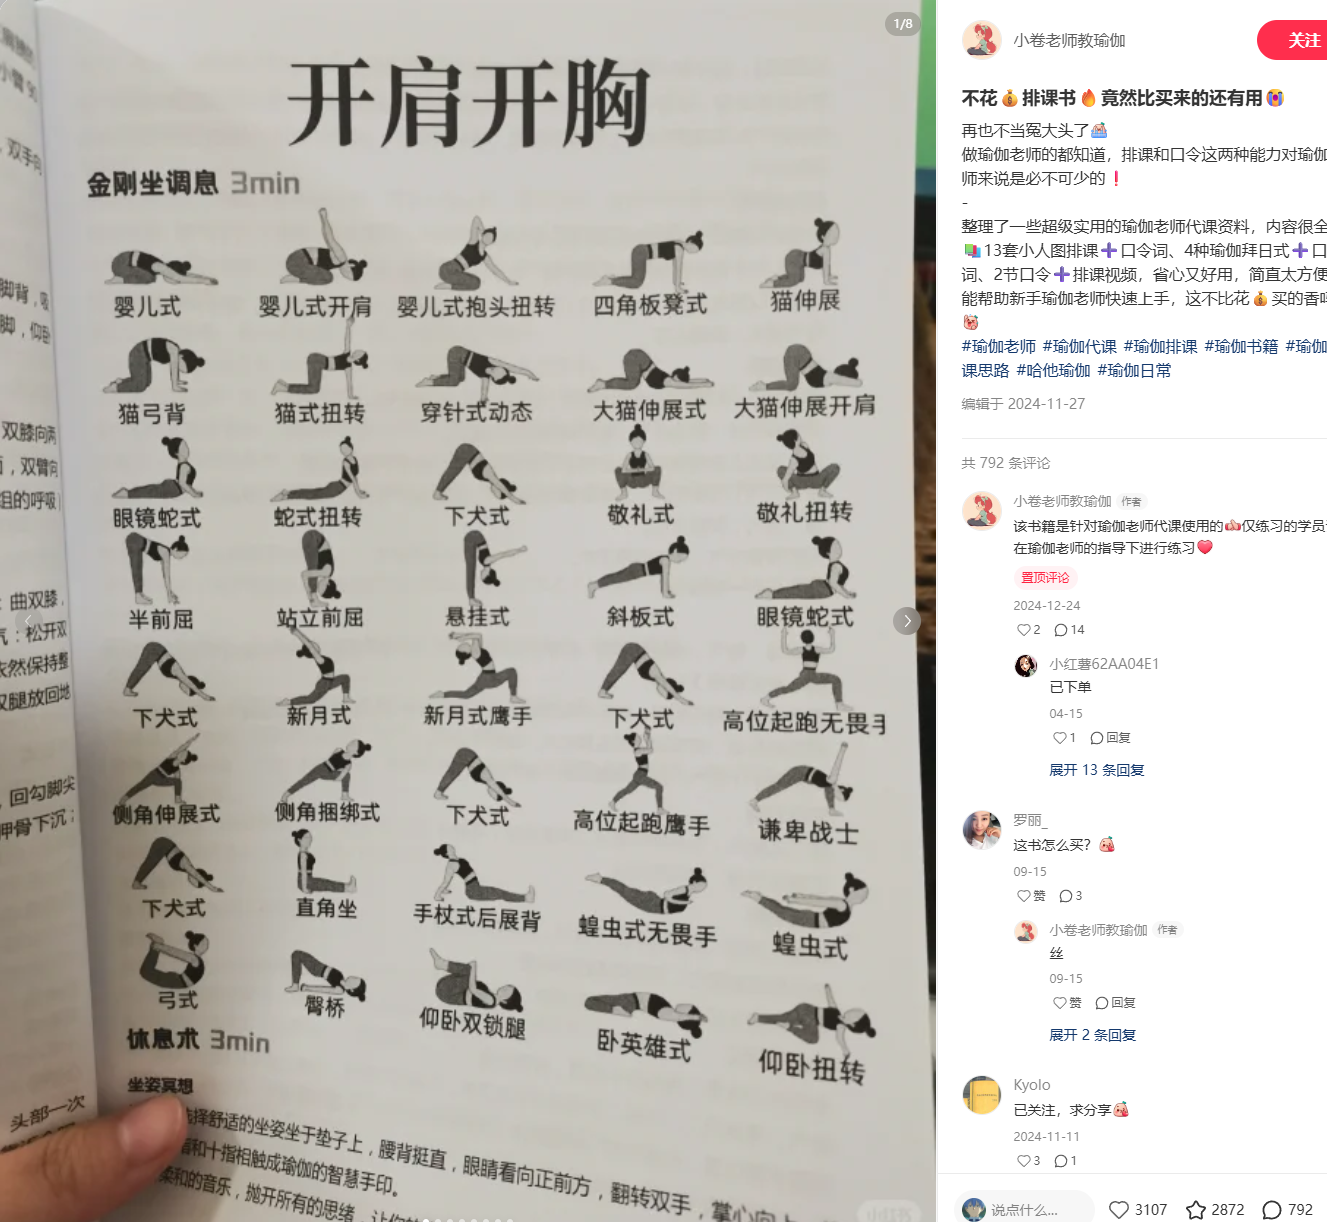 1/8
开肩开胸
金刚坐调息 3min
婴儿式 婴儿式开肩 婴儿式抱头扭转 四角板凳式 猫伸展
猫弓背 猫式扭转 穿针式动态 大猫伸展式 大猫伸展开肩
眼镜蛇式 蛇式扭转 下犬式 敬礼式 敬礼扭转
半前屈 站立前屈 悬挂式 斜板式 眼镜蛇式
下犬式 新月式 新月式鹰手 下犬式 高位起跑无畏手
侧角伸展式 侧角捆绑式 下犬式 高位起跑鹰手 谦卑战士
下犬式 直角坐 手杖式后展背 蝗虫式无畏手 蝗虫式
弓式 臀桥 仰卧双锁腿 卧英雄式 仰卧扭转
休息术 3min
坐姿冥想
择舒适的坐姿坐于垫子上，腰背挺直，眼睛看向正前方，翻转双手，掌心向上
和十指相触成瑜伽的智慧手印。
柔和的音乐，抛开所有的思绪，让你
，双手向
脚背，吸
脚，仰卧
双膝向两
，双臂向
组的呼吸
：曲双膝，
气：松开双
依然保持整
双腿放回地
，回勾脚尖
胛骨下沉；
头部一次
小卷老师教瑜伽
关注
不花💰排课书🔥竟然比买来的还有用😭
再也不当冤大头了
做瑜伽老师的都知道，排课和口令这两种能力对瑜伽
师来说是必不可少的❗
-
整理了一些超级实用的瑜伽老师代课资料，内容很全
13套小人图排课➕口令词、4种瑜伽拜日式➕口
词、2节口令➕排课视频，省心又好用，简直太方便
能帮助新手瑜伽老师快速上手，这不比花💰买的香吗
#瑜伽老师 #瑜伽代课 #瑜伽排课 #瑜伽书籍 #瑜伽
课思路 #哈他瑜伽 #瑜伽日常
编辑于 2024-11-27
共 792 条评论
小卷老师教瑜伽 作者
该书籍是针对瑜伽老师代课使用的仅练习的学员
在瑜伽老师的指导下进行练习❤️
置顶评论
2024-12-24
2 14
小红薯62AA04E1
已下单
04-15
1 回复
展开 13 条回复
罗丽_
这书怎么买？
09-15
赞 3
小卷老师教瑜伽 作者
丝
09-15
赞 回复
展开 2 条回复
Kyolo
已关注，求分享
2024-11-11
3 1
说点什么... 3107 2872 792
小红书